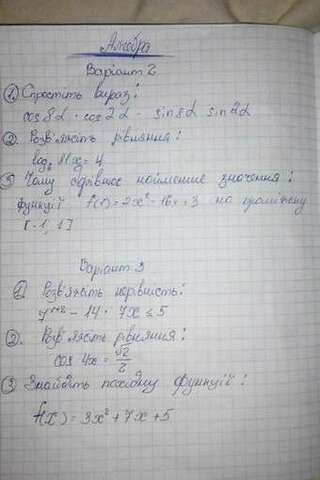 Алгебра
Варіант 2
1. Спростить вираз:
cos 8α · cos 2α - sin 8α sin 2α
2. Розв'яжіть рівняння:
11x = 4
3 Чому дорівнює найменше значення:
функції f(x) = 2x² - 16x + 3 на проміжку
[-1, 1]
Варіант 3
1 Розв'яжіть нерівність:
7ˣ⁺² - 14 · 7x ≤ 5
2. Розв'яжіть рівняння:
cos 4x = √2/2
3 Знайдіть похідну функції:
f(x) = 3x² + 7x + 5